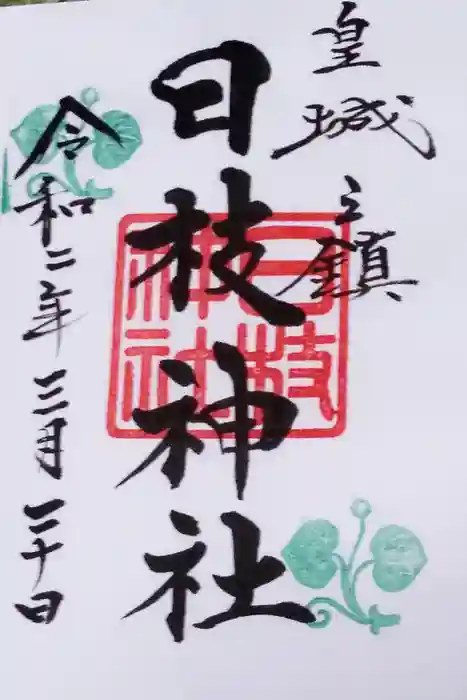 皇城之鎮
日枝神社
日枝
神社
令和二年三月二十日